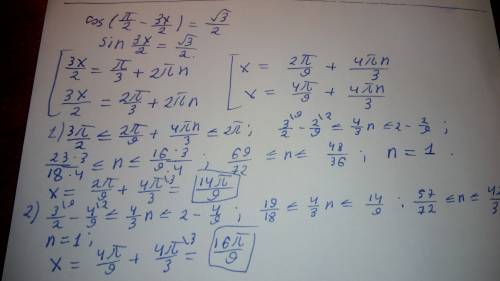 cos(π/2 - 3x/2) = √3/2
sin 3x/2 = √3/2.
[ 3x/2 = π/3 + 2πn [ x = 2π/9 + 4πn/3
3x/2 = 2π/3 + 2πn x = 4π/9 + 4πn/3
1) 3π/2 ≤ 2π/9 + 4πn/3 ≤ 2π; 3/2\9 - 2/9\2 ≤ 4/3 n ≤ 2 - 2/9;
23·3/18·4 ≤ n ≤ 16·3/9·4; 69/72 ≤ n ≤ 48/36; n = 1.
x = 2π/9 + 4π/3\3 = 14π/9
2) 3/2\9 - 4/9\2 ≤ 4/3 n ≤ 2 - 4/9; 19/18 ≤ 4/3 n ≤ 14/9; 57/72 ≤ n ≤ 42/3
n = 1;
x = 4π/9 + 4π/3\3 = 16π/9